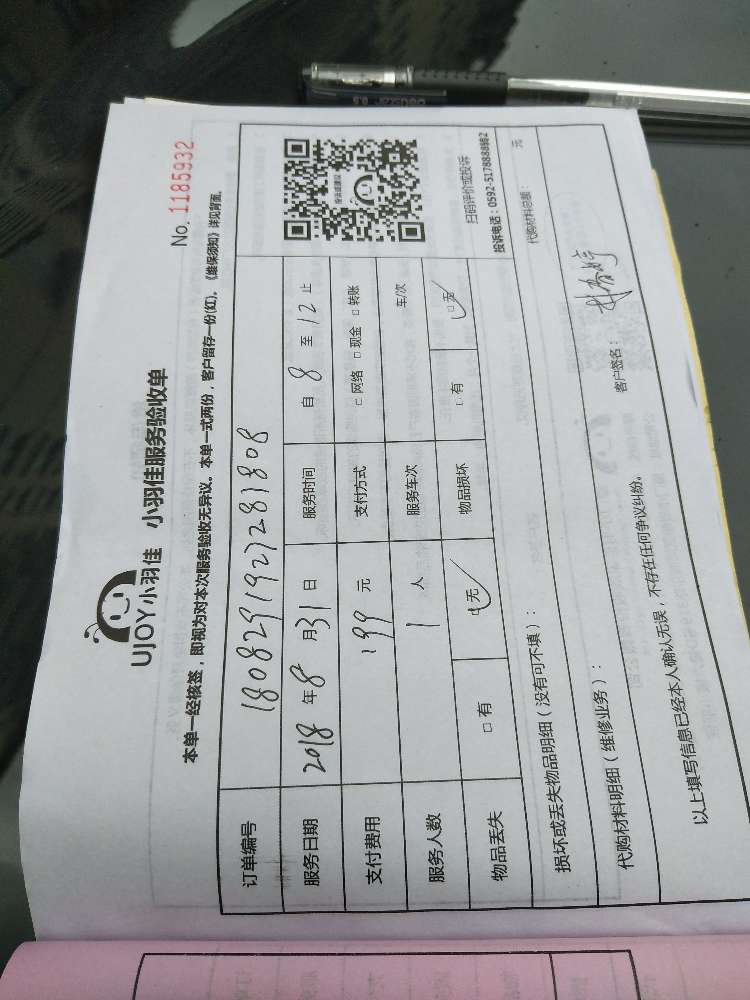 UJOY小羽佳 小羽佳服务验收单
No. 1185932
本单一经核签，即视为对本次服务验收无异议。本单一式两份，客户留存一份(红)。《维保须知》详见背面。
订单编号 1808291927281808
服务日期 2018 年 8 月 31 日 服务时间 自 8 至 12 止
支付费用 199 元 支付方式 □ 网络 □ 现金 □ 转账
服务人数 1 人 服务车次 车/次
物品丢失 □ 有 □ 无 物品损坏 □ 有 □ 无
扫码评价或投诉
投诉电话：0592-5178888转82
损坏或丢失物品明细（没有可不填）：
代购材料明细（维修业务）： 代购材料总额： 元
以上填写信息已经本人确认无误，不存在任何争议纠纷。 客户签名：